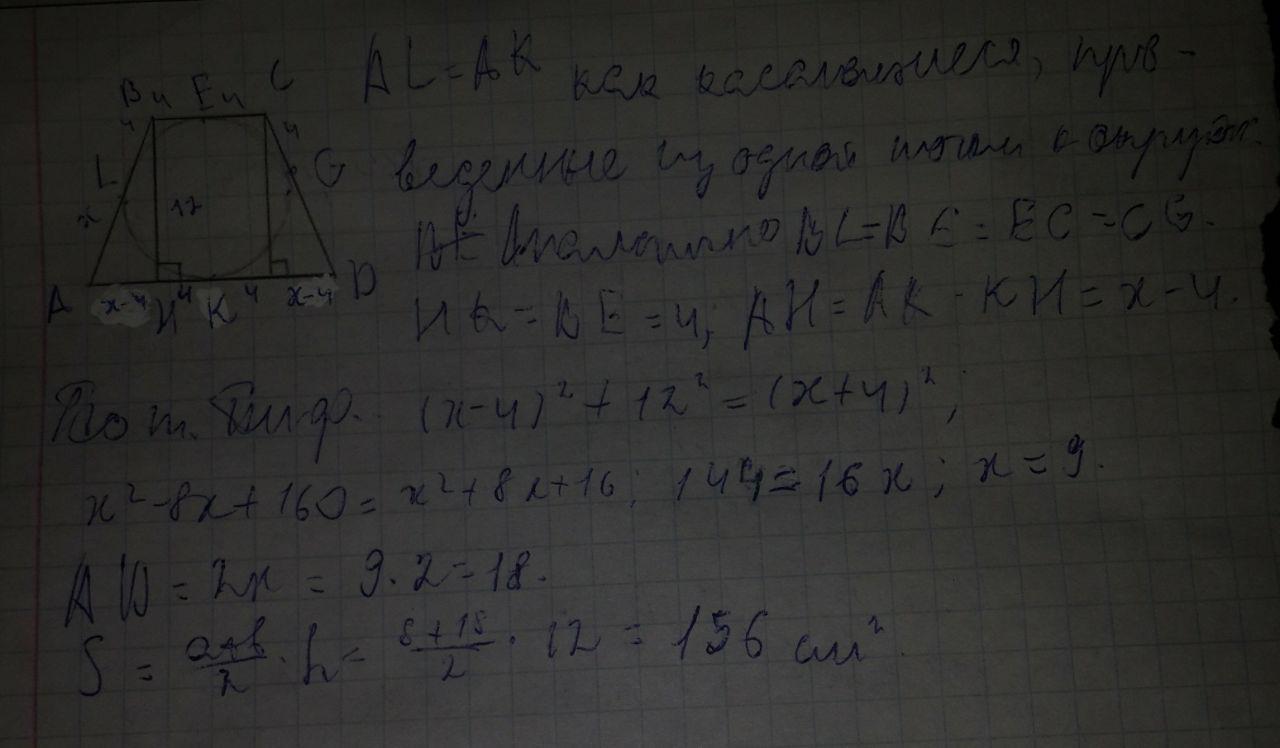 B 4 E 4 C
4 4
L G
x 12
A x-4 H 4 K 4 x-4 D
AL=AK как касательные, пров-
веденные из одной точки к окруж.
Аналогично BL=BE=EC=CG.
HK=BE=4; AH=AK-KH=x-4.
По т. Пиф. (x-4)²+12²=(x+4)²;
x²-8x+160=x²+8x+16; 144=16x; x=9.
AD=2x=9·2=18.
S=(a+b)/2·h=(8+18)/2·12=156 см².